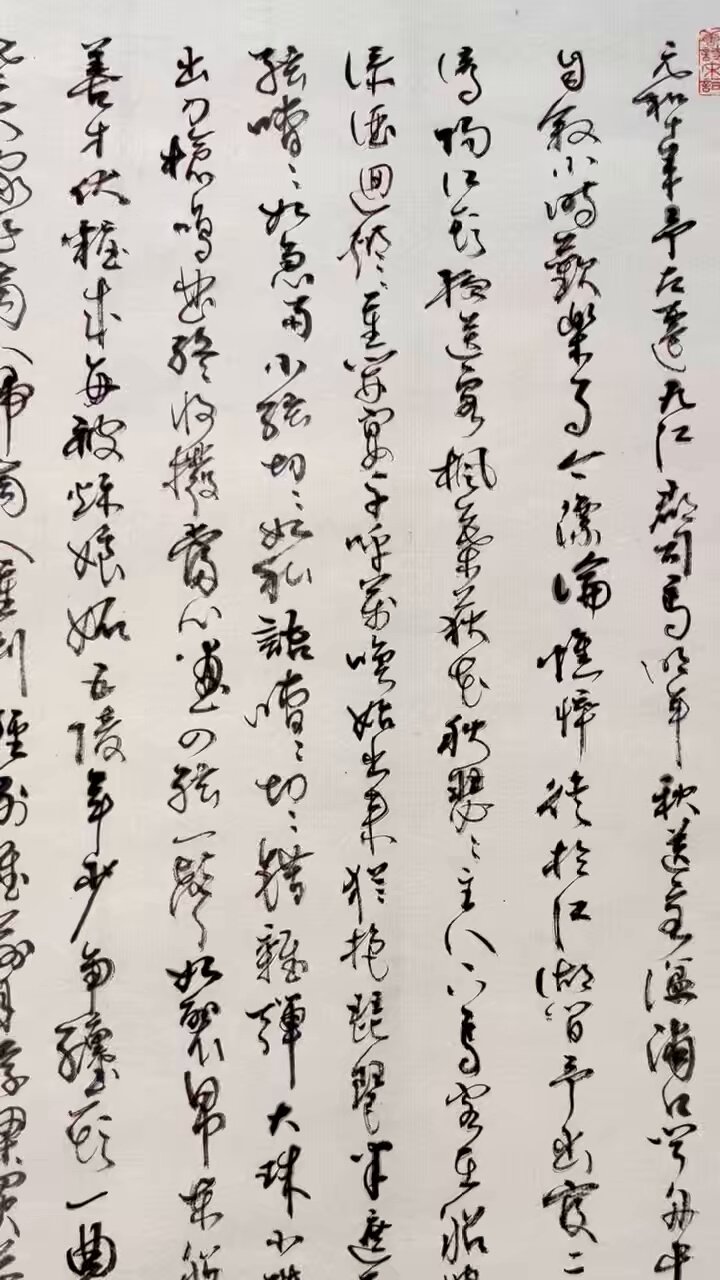 元和十年予左遷九江郡司馬明年秋送客湓浦口聞舟中
自敘小時歡樂事今漂淪憔悴徙於江湖間予出官二
潯陽江頭夜送客楓葉荻花秋瑟〻主人下馬客在船
添酒迴燈重開宴千呼萬喚始出來猶抱琵琶半遮
弦嘈〻如急雨小弦切〻如私語嘈〻切〻錯雜彈大珠小
出刀槍鳴曲終收撥當心畫四弦一聲如裂帛東船
善才伏粧成每被秋娘妒五陵年少爭纏頭一曲
老大嫁作商人婦商人重利輕別離前月浮梁買茶